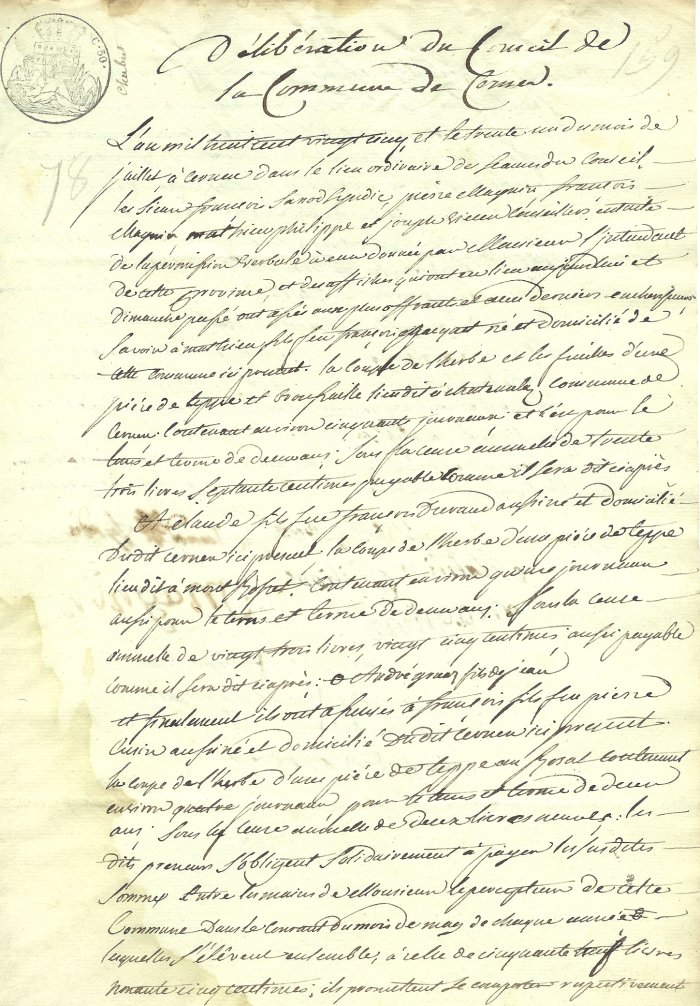 C. 50.
Délibération du Conseil de
la Commune de Cernex.
159
78
L'an mil huit cent vingt cinq et le trente un du mois de
juillet à cernex dans le lieu ordinaire des seances du Conseil
les sieurs françois Syndic, pierre Magnin françois
Magnin mathieu philippe et joseph conseillers, ensuite
de la permission verbale à eux donnée par Monsieur l'jntendant
de cette province, et des affiches qui ont eu lieu aujourdhui et
Dimanche passé ont aux plus offrants et derniers encherisseurs
Savoir à mathieu fils feu françois jacquet né et domicilié de
cette commune ici present. la coupe de l'herbe et les feuilles d'une
pièce de teppe et brousaille lieu dit à commune de
Cernex contenant environ cinquante journeaux et pour le
tems et terme de deux ans; Sous la cense annuelle de trente
trois livres Septante centimes payable comme il Sera dit ciaprès
Et claude fils feu françois Duvand aussi né et domicilié
Dudit cernex ici present la coupe de l'herbe d'une pièce de teppe
lieu dit à mont Rosat. Contenant environ quinze journeaux
aussi pour le tems et terme de deux ans; Sous la cense
annuelle de vingt trois livres, vingt cinq centimes aussi payable
comme il sera dit ciaprès: André fils de jean
et finalement ils ont à françois fils feu pierre
Cusin aussi né et domicilié Dudit cernex ici present
la coupe de l'herbe d'une pièce de teppe au Rosat contenant
environ quatre journaux pour le tems et terme de deux
ans; Sous la cense annuelle de deux livres neuves; les
dits preneurs S'obligent Solidairement à payer les susdites
Sommes Entre les mains de Monsieur le percepteur de cette
Commune Dans le courant du mois de may de chaque année
lesquelles S'élèvent ensemble, à celle de cinquante huit livres
nonante cinq centimes; ils promettent se comporter respectivement